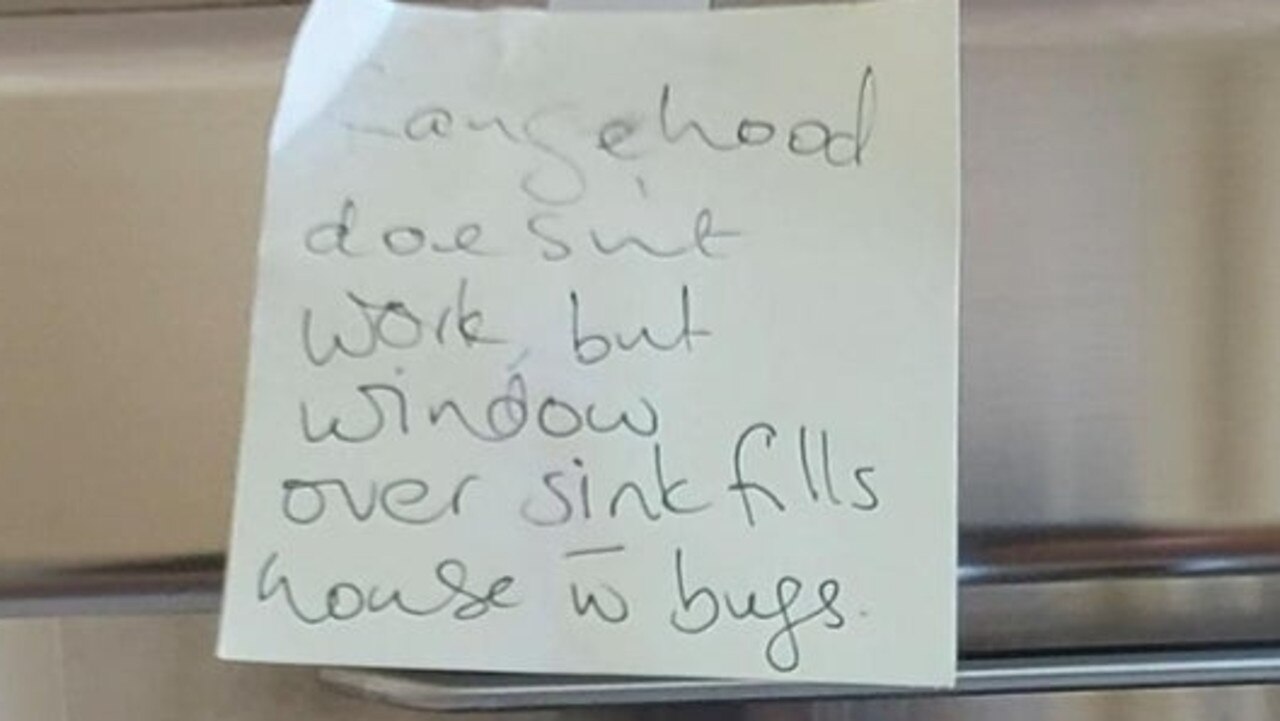 Rangehood
doesn't
work, but
window
over sink fills
house w̅ bugs.